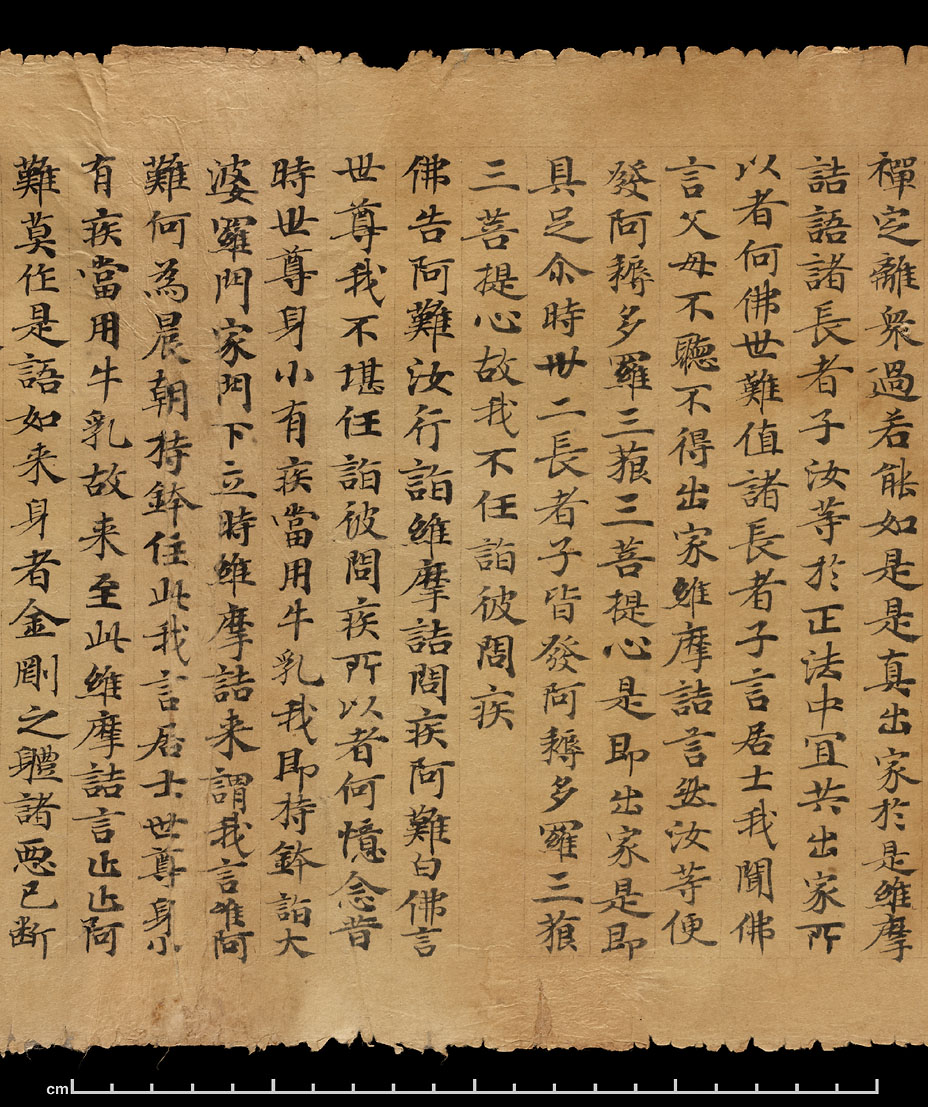 禪定離衆過若能如是是真出家於是維摩
詰語諸長者子汝等於正法中宜共出家所
以者何佛世難值諸長者子言居士我聞佛
言父母不聽不得出家維摩詰言然汝等便
發阿耨多羅三藐三菩提心是即出家是即
具足尒時卅二長者子皆發阿耨多羅三藐
三菩提心故我不任詣彼問疾
佛告阿難汝行詣維摩詰問疾阿難白佛言
世尊我不堪任詣彼問疾所以者何憶念昔
時世尊身小有疾當用牛乳我即持鉢詣大
婆羅門家門下立時維摩詰来謂我言唯阿
難何為晨朝持鉢住此我言居士世尊身小
有疾當用牛乳故来至此維摩詰言止止阿
難莫作是語如来身者金剛之軆諸惡已断
cm